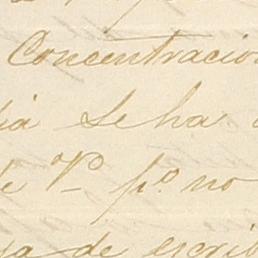 Concentracion
ia se ha
de V. pº. no
ya de escrib